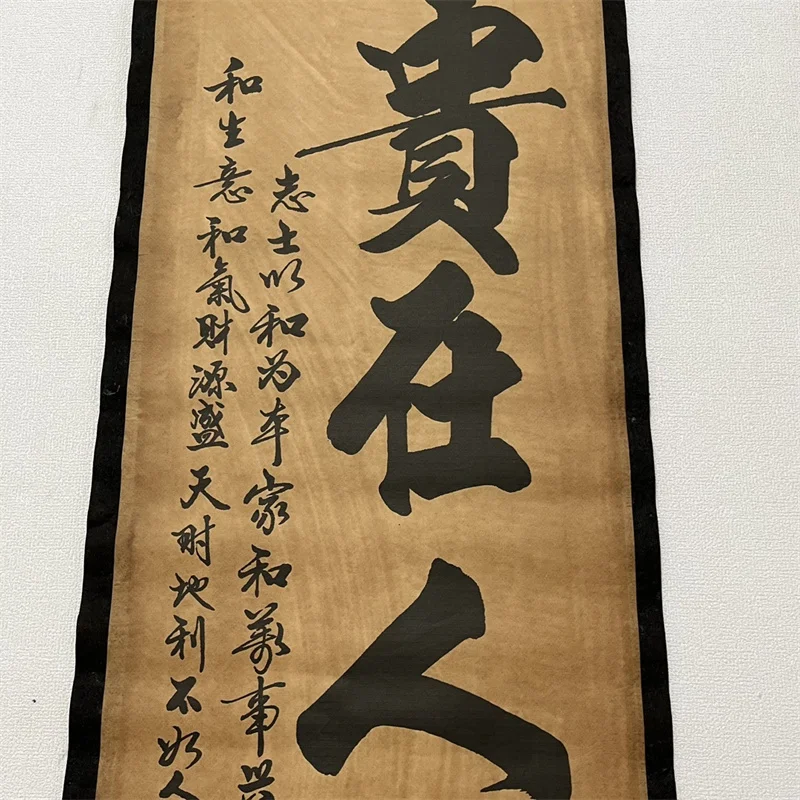 貴在人
志士以和为本家和萬事興
和生意和氣財源盛天时地利不如人